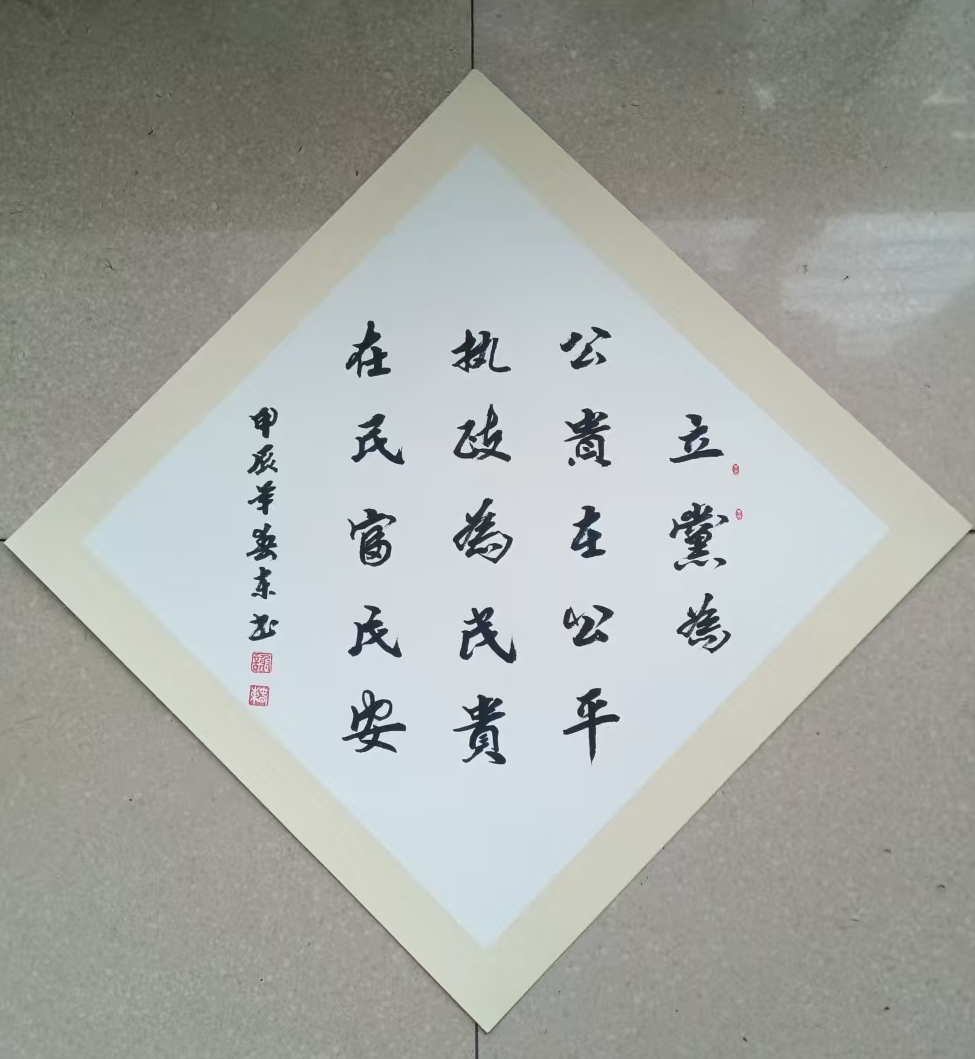 立黨為
公貴在公平
执政為民貴
在民富民安
甲辰年春东书